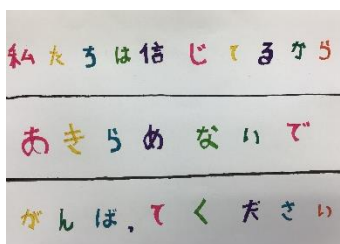 私たちは信じてるから
あきらめないで
がんばってください